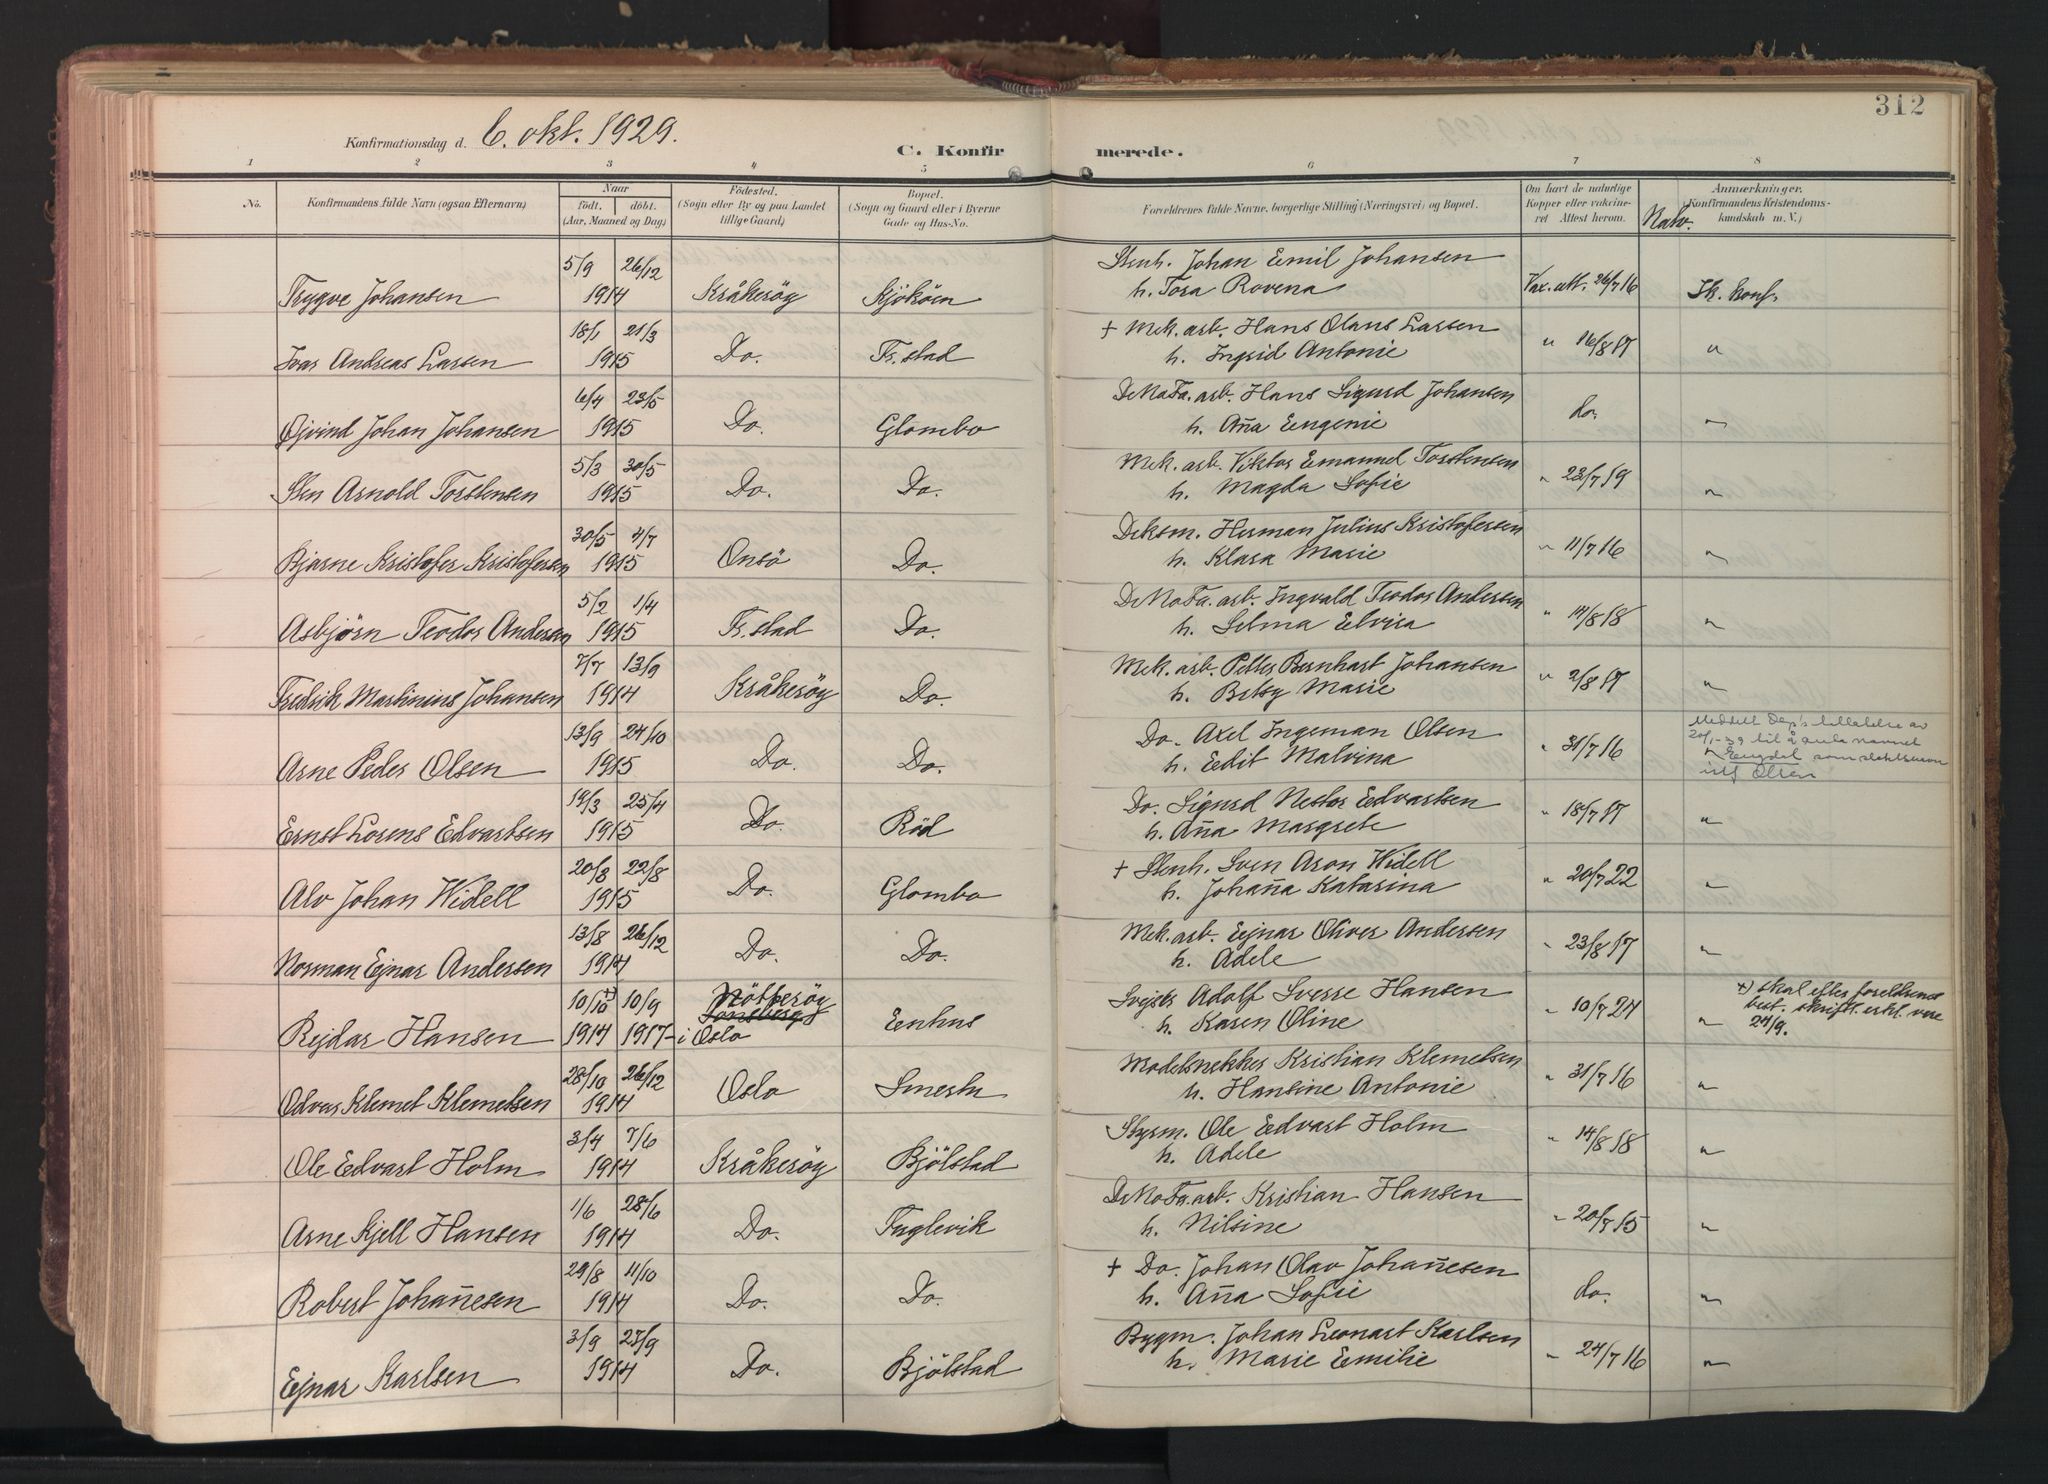 312
Konfirmationsdag d. 6. okt. 1929.
C. Konfirmerede.
1 2 3 4 5 6 7 8
No.
Konfirmandens fulde Navn (ogsaa Efternavn)
Naar
födt. döbt.
(Aar, Maaned og Dag)
Födested.
(Sogn eller By og paa Landet
tillige Gaard)
Bopæl.
(Sogn og Gaard eller i Byerne
Gade og Hus-No.
Forældrenes fulde Navne, borgerlige Stilling (Næringsvei) og Bopæl.
Om havt de naturlige
Kopper eller vakcine-
ret Attest herom.
Anmærkninger.
(Konfirmandens Kristendoms-
kundskab m. V.)
Natv.
5/9 26/12 Stenh. Johan Emil Johansen
Trygve Johansen 1914 Kråkeröy Kjökøen h. Tora Rovena Vax. att. 26/7 16 Ik. konf.
18/1 21/3 + Mek. arb. Hans Olaus Larsen
Ivar Andreas Larsen 1915 Do. Fr.stad h. Ingrid Antonie " 16/8 17 "
6/4 23/5 DeNoFa. arb. Hans Sigurd Johansen
Øjvind Johan Johansen 1915 Do. Glombo h. Aña Eugenie do. "
5/3 30/5 Mek. arb. Viktor Emanuel Torstensen
Sten Arnold Torstensen 1915 Do. Do. h. Magda Sofie " 23/7 19 "
30/5 4/7 Deksm. Herman Julius Kristofersen
Bjarne Kristofer Kristofersen 1915 Onsö Do. h. Klara Marie " 11/7 16 "
5/2 1/4 DeNoFa. arb. Ingvald Teodor Andersen
Asbjørn Teodor Andersen 1915 Fr.stad Do. h. Selma Elvira " 14/8 18 "
7/7 13/9 Mek. arb. Petter Bernhart Johansen
Fredrik Martinius Johansen 1914 Kråkeröy Do. h. Betsy Marie " 2/8 17 "
13/9 24/10 Do. Axel Ingeman Olsen
Arne Peder Olsen 1915 Do. Do. h. Edit Malvina " 31/7 16 "
Meddelt Dep's tillatelse av
20/1-39 til å anta navnet
Engdal som slektsnavn
istf Olsen
19/3 25/4 Do. Sigurd Nestor Edvartsen
Ernst Lorens Edvartsen 1915 Do. Röd h. Aña Margrete " 18/7 17 "
20/3 22/8 + Stenh. Sven Aron Widell
Alv Johan Widell 1915 Do. Glombo h. Johaña Katarina " 20/7 22 "
13/8 26/12 Mek. arb. Ejnar Oliver Andersen
Norman Ejnar Andersen 1914 Do. Do. h. Adele " 23/8 17 "
10/10 +) 10/9 Nötteröy Svejser Adolf Sverre Hansen
Tönsberg
Rejdar Hansen 1914 1917- i Oslo Enhus h. Karen Oline " 10/7 24 "
+) skal efter foreldrenes
best. skriftl. erkl. være
24/9.
28/10 26/12 Modelsnekker Kristian Klemetsen
Odvar Klemet Klemetsen 1914 Oslo Smertu h. Hansine Antonie " 31/7 16 "
3/4 7/6 Styrm. Ole Edvart Holm
Ole Edvart Holm 1914 Kråkeröy Bjölstad h. Adele " 14/8 18 "
1/6 28/6 DeNoFa. arb. Kristian Hansen
Arne Kjell Hansen 1914 Do. Fuglevik h. Nilsine " 20/7 15 "
29/8 11/10 + Do. Johan Olav Johañesen
Robert Johañesen 1914 Do. Do. h. Aña Sofie do. "
3/9 27/9 Bygm. Johan Leonart Karlsen
Ejnar Karlsen 1914 Do. Bjölstad h. Marie Emilie " 24/7 16 "